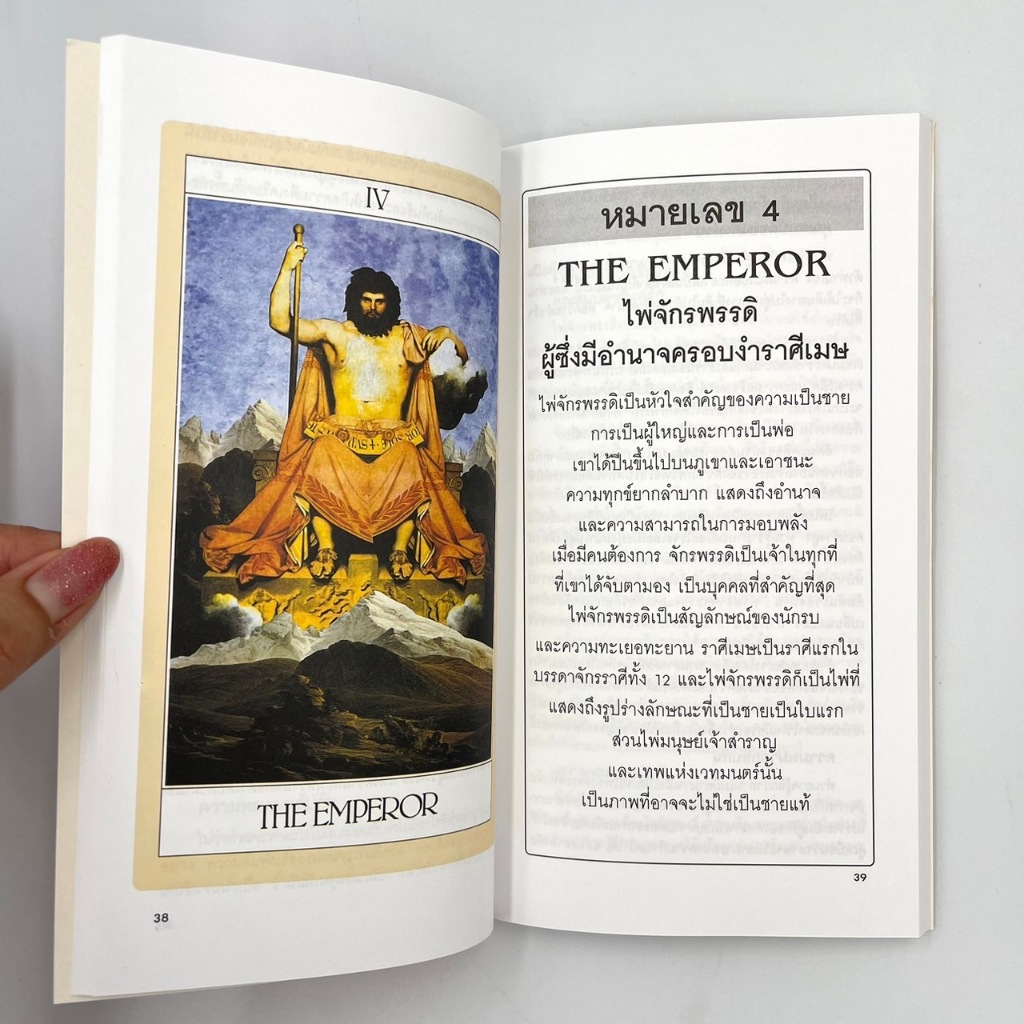 IV
THE EMPEROR
38
หมายเลข 4
THE EMPEROR
ไพ่จักรพรรดิ
ผู้ซึ่งมีอำนาจครอบงำราศีเมษ
ไพ่จักรพรรดิเป็นหัวใจสำคัญของความเป็นชาย
การเป็นผู้ใหญ่และการเป็นพ่อ
เขาได้ปีนขึ้นไปบนภูเขาและเอาชนะ
ความทุกข์ยากลำบาก แสดงถึงอำนาจ
และความสามารถในการมอบพลัง
เมื่อมีคนต้องการ จักรพรรดิเป็นเจ้าในทุกที่
ที่เขาได้จับตามอง เป็นบุคคลที่สำคัญที่สุด
ไพ่จักรพรรดิเป็นสัญลักษณ์ของนักรบ
และความทะเยอทะยาน ราศีเมษเป็นราศีแรกใน
บรรดาจักรราศีทั้ง 12 และไพ่จักรพรรดิก็เป็นไพ่ที่
แสดงถึงรูปร่างลักษณะที่เป็นชายเป็นใบแรก
ส่วนไพ่มนุษย์เจ้าสำราญ
และเทพแห่งเวทมนตร์นั้น
เป็นภาพที่อาจจะไม่ใช่เป็นชายแท้
39